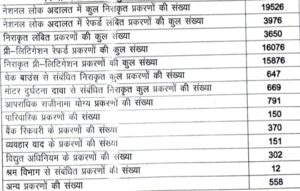 नेशनल लोक अदालत में कुल निराकृत प्रकरणों की संख्या 19526
नेशनल लोक अदालत में रेफर्ड लंबित प्रकरणों की कुल संख्या 3976
निराकृत लंबित प्रकरणों की कुल संख्या 3650
प्री–लिटिगेशन रेफर्ड प्रकरणों की कुल संख्या 16076
निराकृत प्री–लिटिगेशन प्रकरणों की कुल संख्या 15876
चेक बाउंस से संबंधित निराकृत कुल संख्या 647
मोटर दुर्घटना दावा से संबंधित निराकृत कुल संख्या 669
आपराधिक राजीनामा योग्य प्रकरणों की संख्या 791
पारिवारिक प्रकरणों की संख्या 150
बैंक रिकवरी के प्रकरणों की संख्या 370
व्यवहार वाद के प्रकरणों की संख्या 151
विद्युत अधिनियम के प्रकरणों की संख्या 302
श्रम विभाग से संबंधित प्रकरणों की संख्या 12
अन्य प्रकरणों की संख्या 558